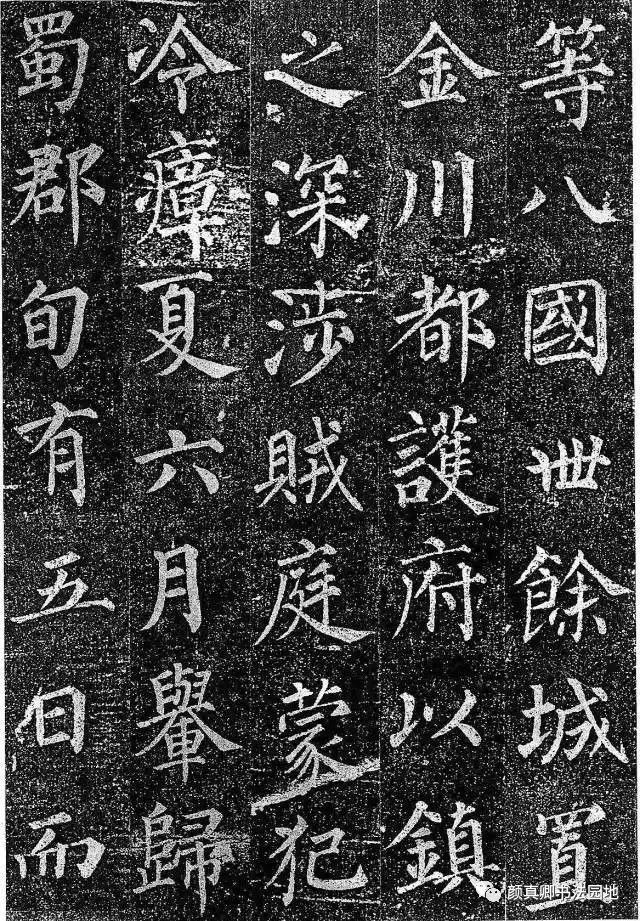 等八國卌餘城置
金川都護府以鎮
之深涉賊庭蒙犯
冷瘴夏六月轝歸
蜀郡旬有五日而
颜真卿书法园地